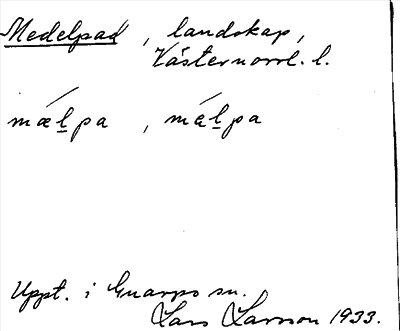 Medelpad, landskap,
Västernorrl. l.
mǽl̲pa, mál̲pa
Uppt. i Gnarps sn.
Lars Larsson 1933.